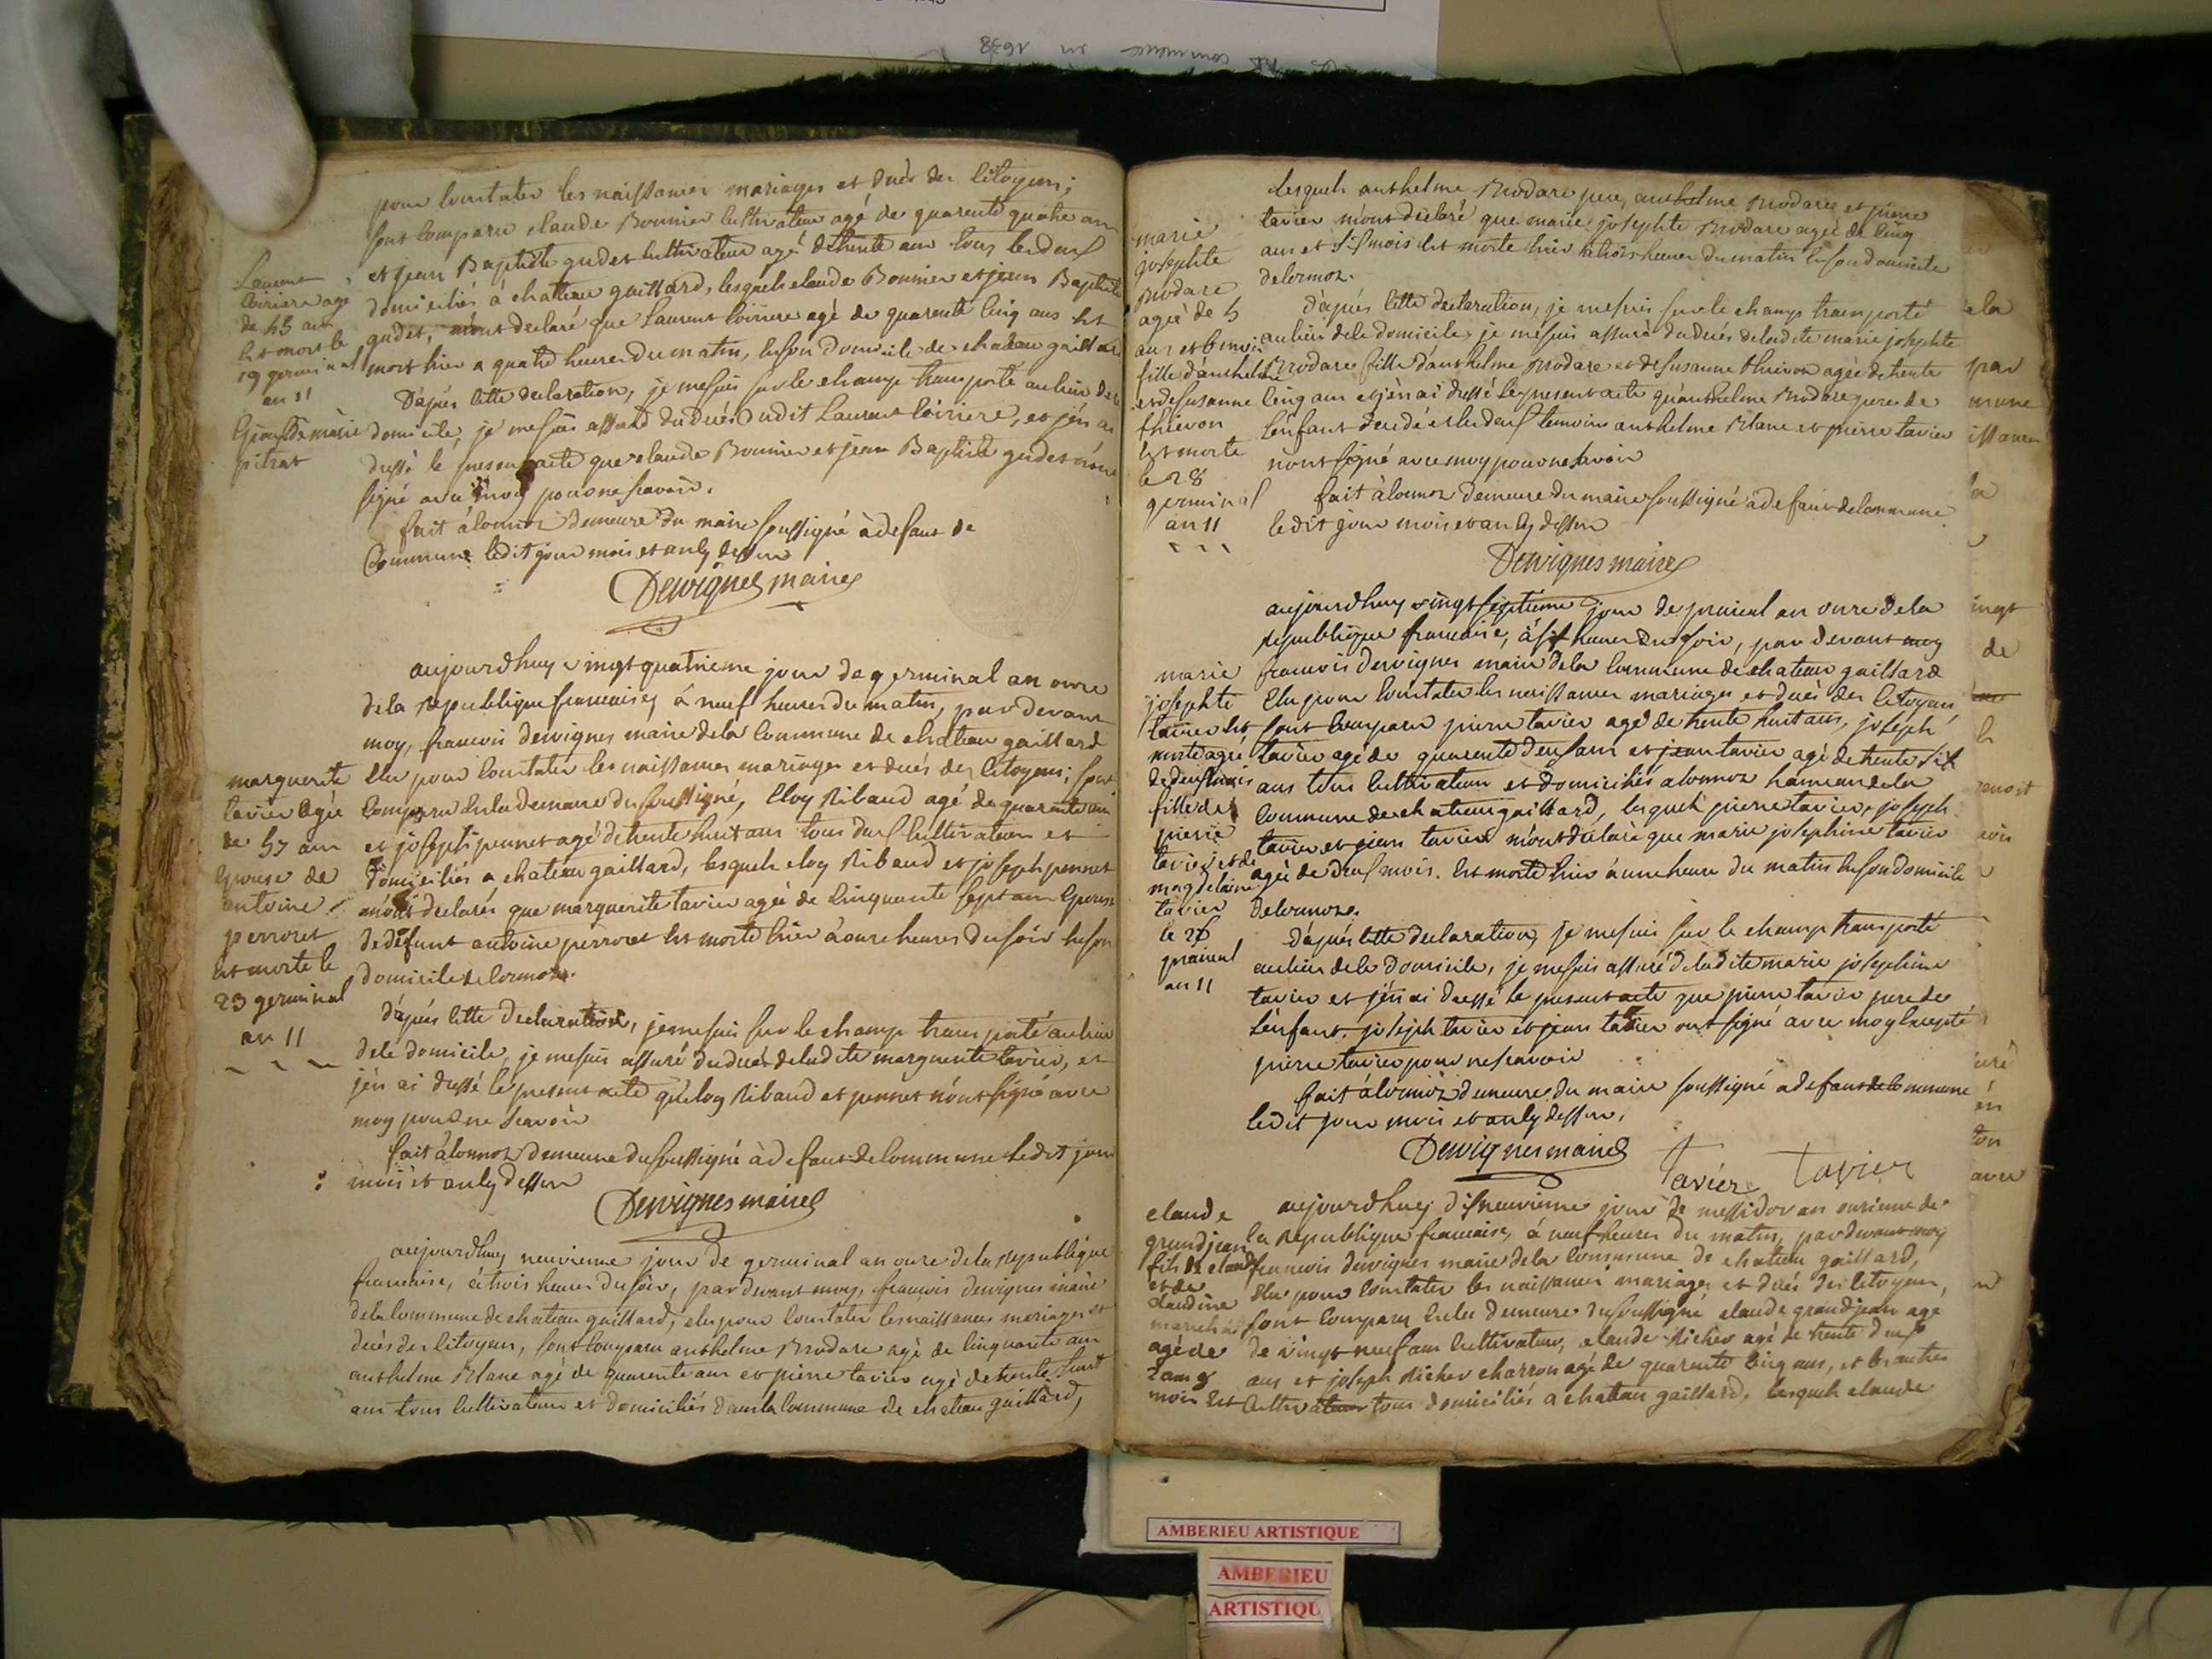 pour constater les naissances mariages et ducès des citoyens;
sont comparu claude Bonnier cultivateur agé de quarente quatre ans
et jean Baptiste gudet cultivateur agé de trente ans tous les deux
domiciliés à chatteau gaillard, lesquels claude Bonnier et jean Baptiste
gudet, m'ont declaré que Laurent Coiriere agé de quarente cinq ans est
mort hier a quatre heures du matin, en son domicile de chateau gaillard
D'apiés cette declaration, je me suis sur le champ transporté au lieu de ce
domicile, je me suis assuré du ducès dudit Laurent Coirriere, et j'en ai
dressé le present acte que claude Bonnier et jean Baptiste gudet n'ont
signé avec moy pour ne scavoir.
fait à cormoz demeure du maire soussigné à defaut de
Commune ledit jour mois et an cy dessus
Dervignes maire
Laurent
Coiriere agé
de 45 ans
est mort le
19 germinal
an 11
Epoux de marie
pitrat
aujourdhuy vingt quatrieme jour de germinal an onze
de la republique francaise, à neuf heures du matin, par devant
moy, francois dervignes maire de la commune de chateau gaillard
elu pour constater les naissances mariages et ducés des citoyens; sont
comparu en la demeure du soussigné, Eloy Ribaud agé de quarente ans
et joseph pennet agé de trente huit ans tous deux cultivateurs et
domiciliés a chateau gaillard, lesquels eloy Ribaud et joseph pennet
m'ont declarés que marguerite tavier agée de cinquante sept ans Epouse
de defunt antoine perroset est morte hier à onze heures du soir en son
domicile de cormoz.
d'apiés cette declaration, je me suis sur le champ transporté au lieu
de ce domicile, je me suis assuré du ducès de ladite marguerite tavier, et
j'en ai dressé le present acte qu'eloy Ribaud et pennet n'ont signé avec
moy pour ne scavoir
fait à cormoz demeure du soussigné à defaut de commune ledit jour
mois et an cy dessus
Dervignes maire
marguerite
tavier agée
de 57 ans
Epouse de
antoine
perroset
est morte le
23 germinal
an 11
aujourdhuy neuvieme jour de germinal an onze de la republique
francaise, à trois heures du soir, par devant moy, francois dervignes maire
de la commune de chateau gaillard, elu pour constater les naissances mariages et
ducès des citoyens, sont comparu anthelme Brodare agé de cinquante ans
anthelme Blanc agé de quarente ans et pierre tavier agé de trente huit
ans tous cultivateurs et domiciliés dans la commune de chateau gaillard,
lesquels anthelme Brodare pere, anthelme Brodare et pierre
tavier m'ont declaré que marie josephte Brodare agée de cinq
ans et six mois est morte hier à trois heures du matin en son domicile
de cormoz.
d'apiés cette declaration, je me suis sur le champ transporté
au lieu de ce domicile, je me suis assuré du ducés de ladite marie josephte
Brodare fille d'anthelme Brodare et de susanne thievon agée de trente
cinq ans et j'en ai dressé le present acte qu'anthelme Brodare pere de
l'enfant decedé et les deux temoins anthelme Blanc et pierre tavier
n'ont signé avec moy pour ne savoir
fait à cormoz demeure du maire soussigné à defaut de commune
ledit jour mois et an cy dessus
Dervignes maire
marie
josephte
Brodare
agée de 5
ans et 6 mois
fille d'anthelme
et de susanne
thievon
est morte
le 28
germinal
an 11
aujourdhuy vingt septieme jour de prairial an onze de la
republique francaise, à six heures du soir, par devant moy
francois dervignes maire de la commune de chateau gaillard
elu pour constater les naissances mariages et ducès des citoyens,
sont comparu pierre tavier agé de trente huit ans, joseph
tavier agé de quarente deux ans et jean tavier agé de trente six
ans tous cultivateurs et domiciliés a cormoz hameau de la
commune de chateau gaillard, lesquels pierre tavier, joseph
tavier et jean tavier m'ont declaré que marie josephine tavier
agée de deux mois. est morte hier à une heure du matin en son domicile
de cormoz.
d'apiés cette declaration, je me suis sur le champ transporté
au lieu de ce domicile, je me suis assuré de ladite marie josephine
tavier et j'en ai dressé le present acte que pierre tavier pere de
l'enfant. joseph tavier et jean tavier ont signé avec moy Excepté
pierre tavier pour ne scavoir
fait à cormoz demeure du maire soussigné a defaut de commune
ledit jour mois et an cy dessus.
Dervignes maire Tavier Tavier
marie
josephte
tavier est
morte agée
de deux mois
fille de
pierre
tavier et de
magdelaine
tavier
le 26
prairial
an 11
aujourdhuy dixneuvieme jour de messidor an onzieme de
la republique francaise, à neuf heures du matin, par devant moy
francois dervignes maire de la commune de chateau gaillard,
elu pour constater les naissances mariages et ducés des citoyens,
sont comparu en la demeure du soussigné claude grandjean agé
de vingt neuf ans cultivateur, claude Richer agé de trente deux
ans et joseph Richer charron agé de quarente cinq ans, et les autres
cultivateurs tous domiciliés a chateau gaillard, lesquels claude
claude
grandjean
fils de claude
et de
claudine
agé de
2 ans 8
mois est
ela
par
ingt
de
avec
AMBERIEU ARTISTIQUE
AMBERIEU
ARTISTIQU